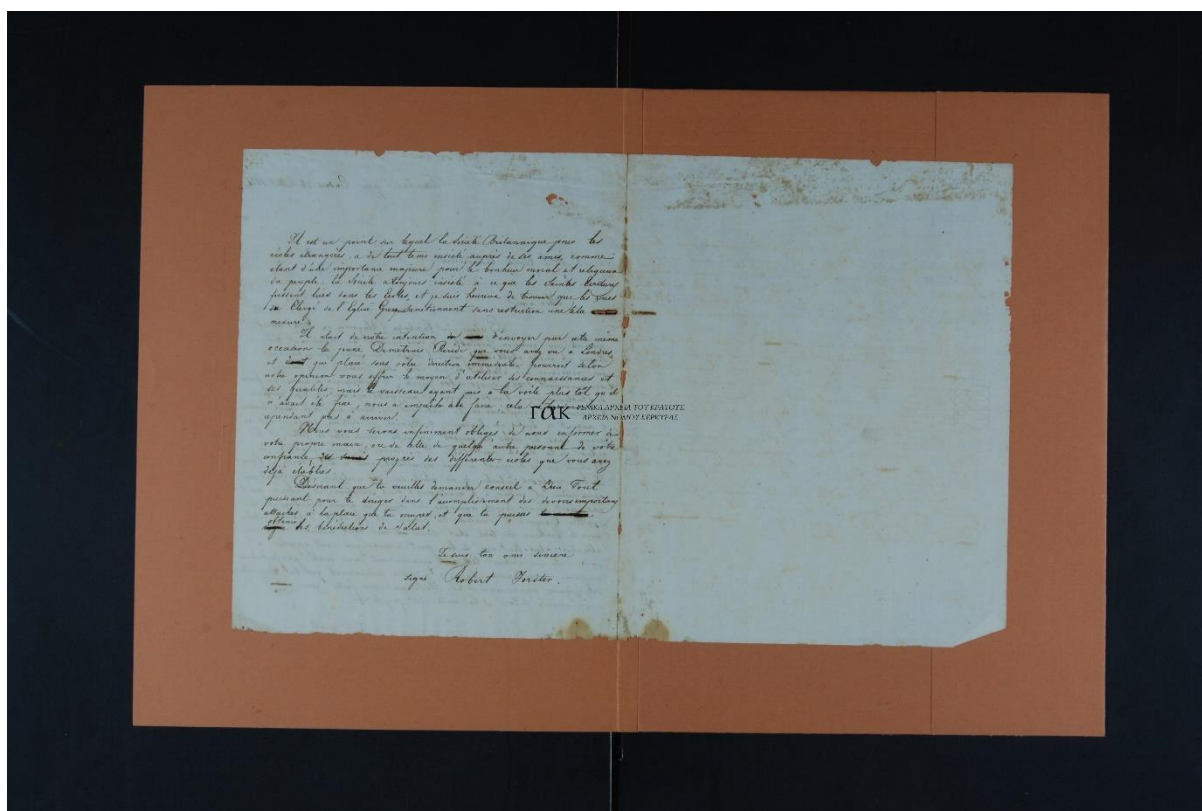 Il est un point sur lequel la Société Britannique pour les
écoles étrangères, a de tout tems insisté auprès de ses amis, comme
étant d'une importance majeure pour le bonheur moral et religieux
du peuple. la Société a toujours insisté à ce que les Saintes Ecritures
fussent lues dans les Ecoles, et je suis heureux de trouver que les vues
du Clergé de l'Eglise Grecque sanctionnent sans restriction une telle
mesure.
Il était de notre intention d'envoyer par cette même
occasion le jeune Demetrius que vous avez vu à Londres,
et qui placé sous votre direction immédiate, pourroit selon
notre opinion vous offrir le moyen d'utiliser ses connaissances et
ses qualités mais le vaisseau ayant mis à la voile plus tôt qu'il
n'avait été fixé, nous a empêché de faire cela
cependant pas à arriver.
ΓΑΚ ΓΕΝΙΚΑ ΑΡΧΕΙΑ ΤΟΥ ΚΡΑΤΟΥΣ
ΑΡΧΕΙΑ ΝΟΜΟΥ ΚΕΡΚΥΡΑΣ
Nous vous serons infiniment obligés de nous informer de
votre propre main, ou de celle de quelqu'autre personne de votre
confiance, progrès des différentes écoles que vous avez
déjà établies.
Désirant que tu veuilles demander conseil à Dieu Tout
puissant pour te diriger dans l'accomplissement des devoirs importans
attachés à la place que tu occupes, et que tu puisses
obtenir les bénédictions de salut.
Je suis ton ami sincère
signé Robert Forster.